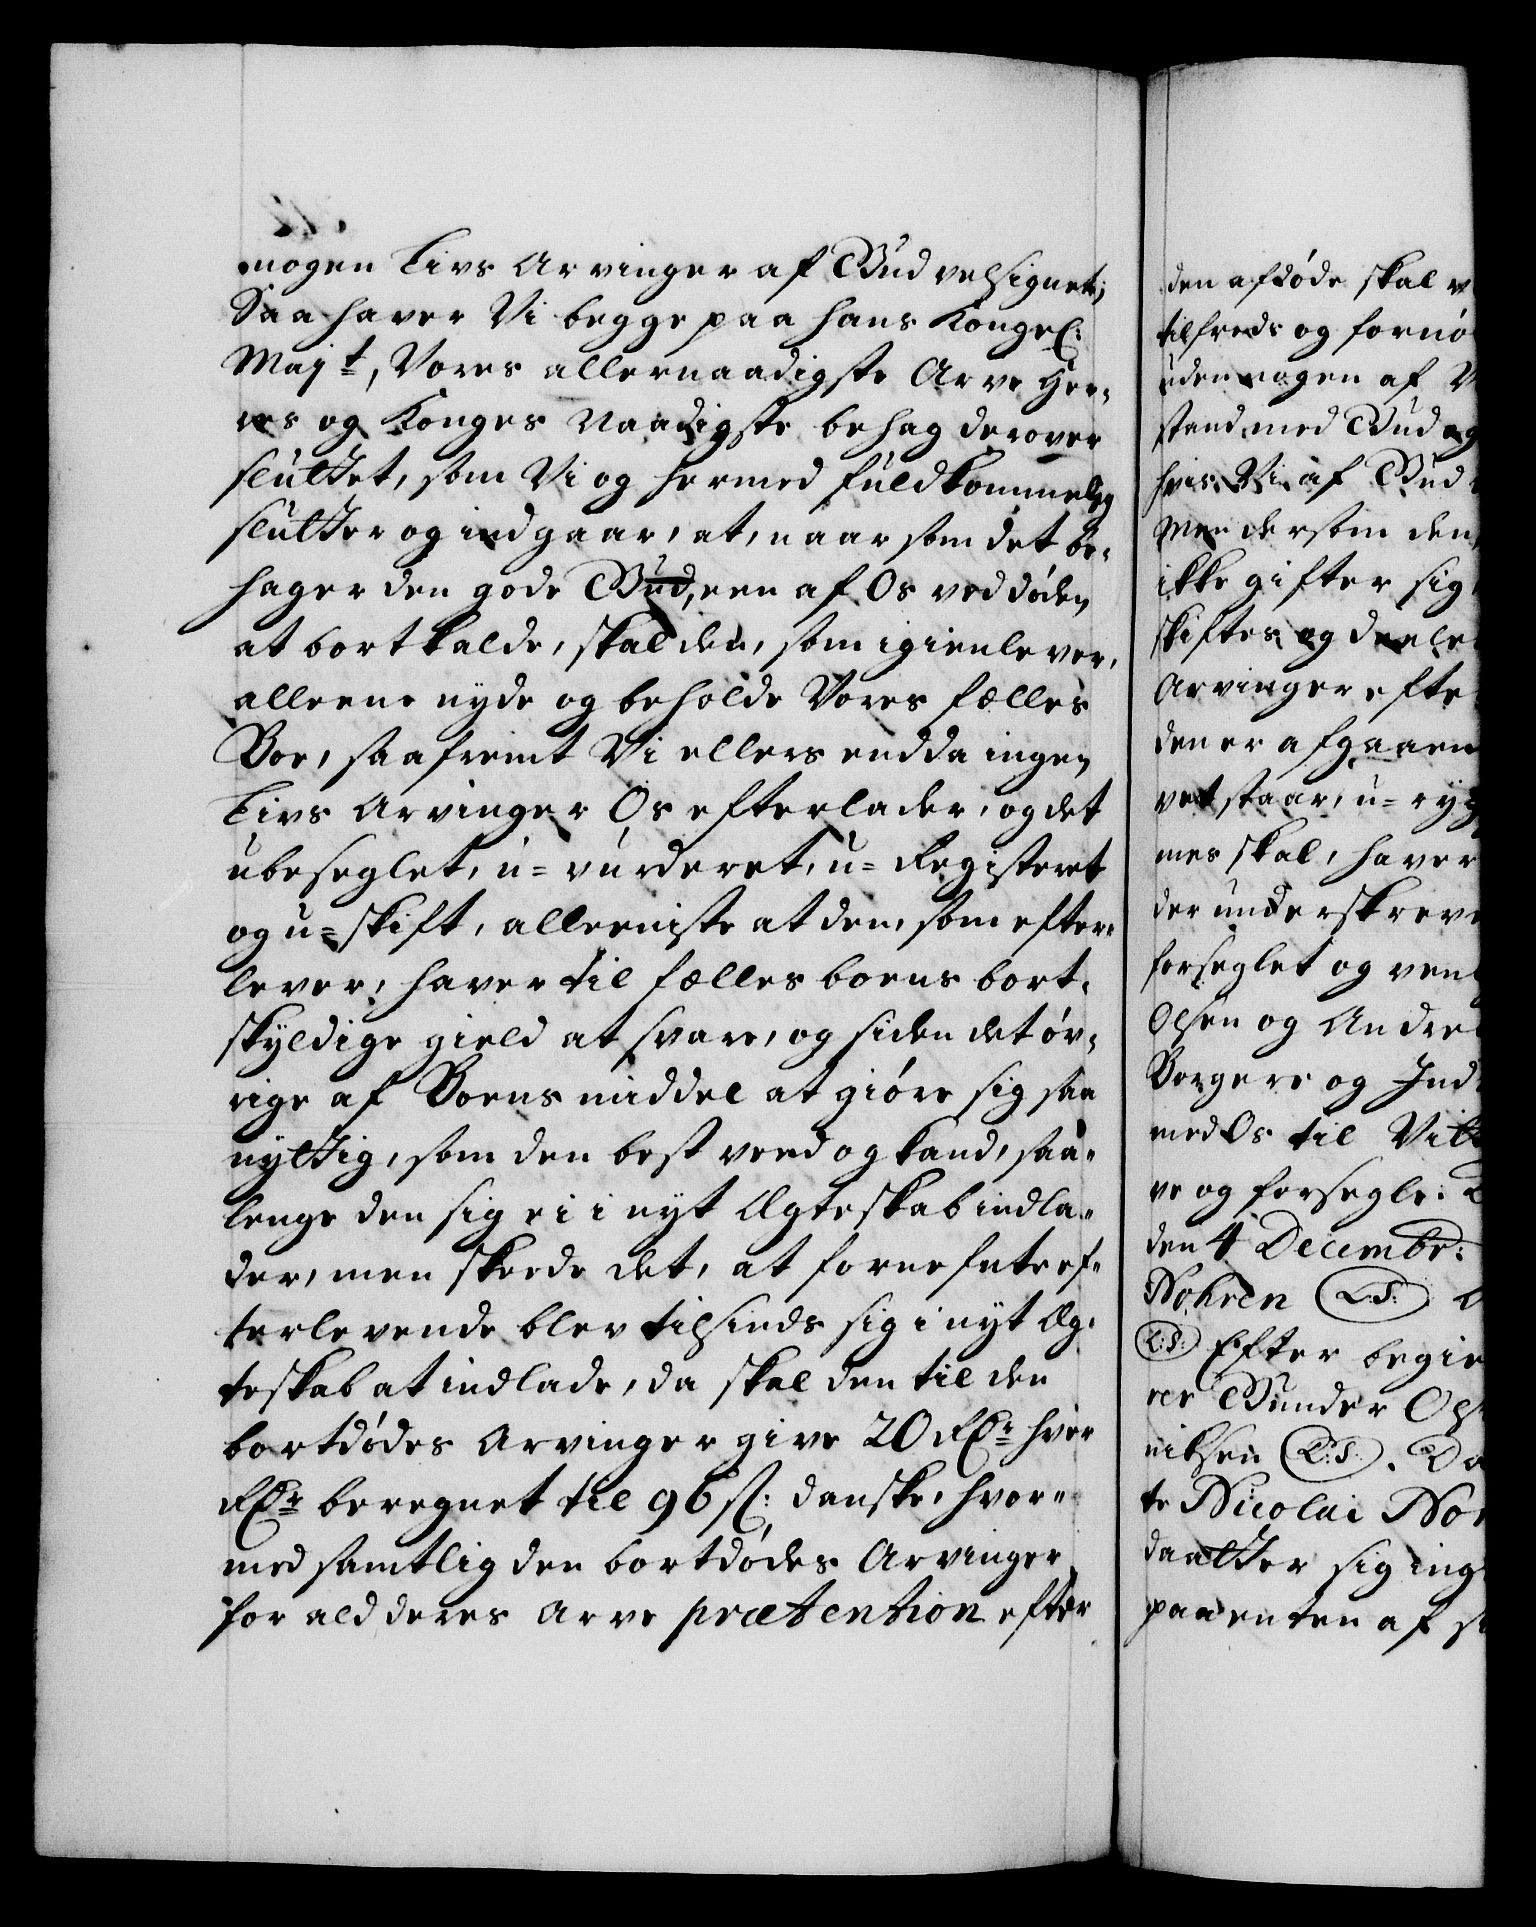 nogen Livs Arvinger af Gud velsignet;
Saa haver Vi begge paa Hans Kongel:
Majt, Vores allernaadigste Arve Her-
res og Konges Naadigste behag derover
sluttet, som Vi og hermed fuldkommelig
slutter og indgaar, at, naar som det be-
hager den gode Gud, een af Os ved døden
at bortkalde, skal den, som igienlever,
alleene nyde og beholde Vores fælles
Boe, saafremt Vi ellers endda ingen
Livs Arvinger Os efterlader, og det
ubeseglet, u-vurderet, u-Registeret
og u-skift, alleeniste at den, som efter-
lever, haver til fælles boens bort-
skyldige gield at svare, og siden det øv-
rige af Boens middel at giøre sig saa
nyttig, som den best veed og kand, saa-
lenge den sig ei i nyt Ægteskab indla-
der, men skeede det, at fornefnte ef-
terlevende blev tilsinds sig i nyt Æg-
teskab at indlade, da skal den til den
bortdødes Arvinger give 20 Rdr hver
Rdr beregnet til 96 s: danske, hvor-
med samtlig den bortdødes Arvinger
for ald deres Arve prætention efter
den afdøde skal v
tilfreds og fornø
uden nogen af V
stand med Gud og
hvis Vi af Gud
Men dersom den
ikke gifter sig
skiftes og deele
Arvinger efte
den er afgaaen
vet staar, u-ryg
mes skal, haver
der underskreve
forseglet og ven
Olsen og Andre
Borgere og Ind
med Os til Vitt
ve og forsegle.
den 4 Decembr:
Nohren L:S:
L:S: Efter begie
rer Gunder Ols
nilsen L:S:. Da
te Nicolai Nor
daatter sig ing
paa enten af s